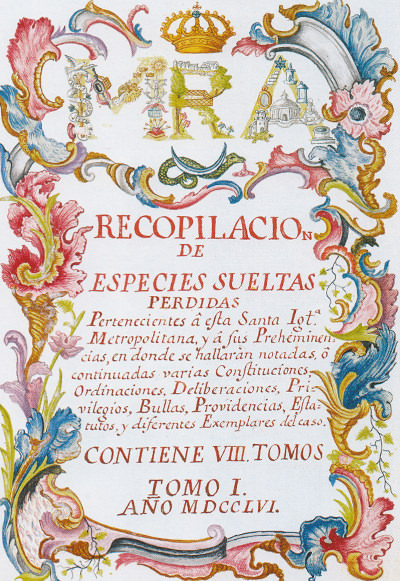 MRA
RECOPILACION
DE
ESPECIES SUELTAS
PERDIDAS
Pertenecientes â esta Santa Igt.ª
Metropolitana, y â sus Prehèminen-
cias, en donde se hallaràn notadas, ô
continuadas varias Constituciones,
Ordinaciones, Deliberaciones, Pri-
vilegios, Bullas, Providencias, Esta-
tutos, y diferentes Exemplares del caso.
CONTIENE VIII. TOMOS
TOMO I.
AÑO MDCCLVI.